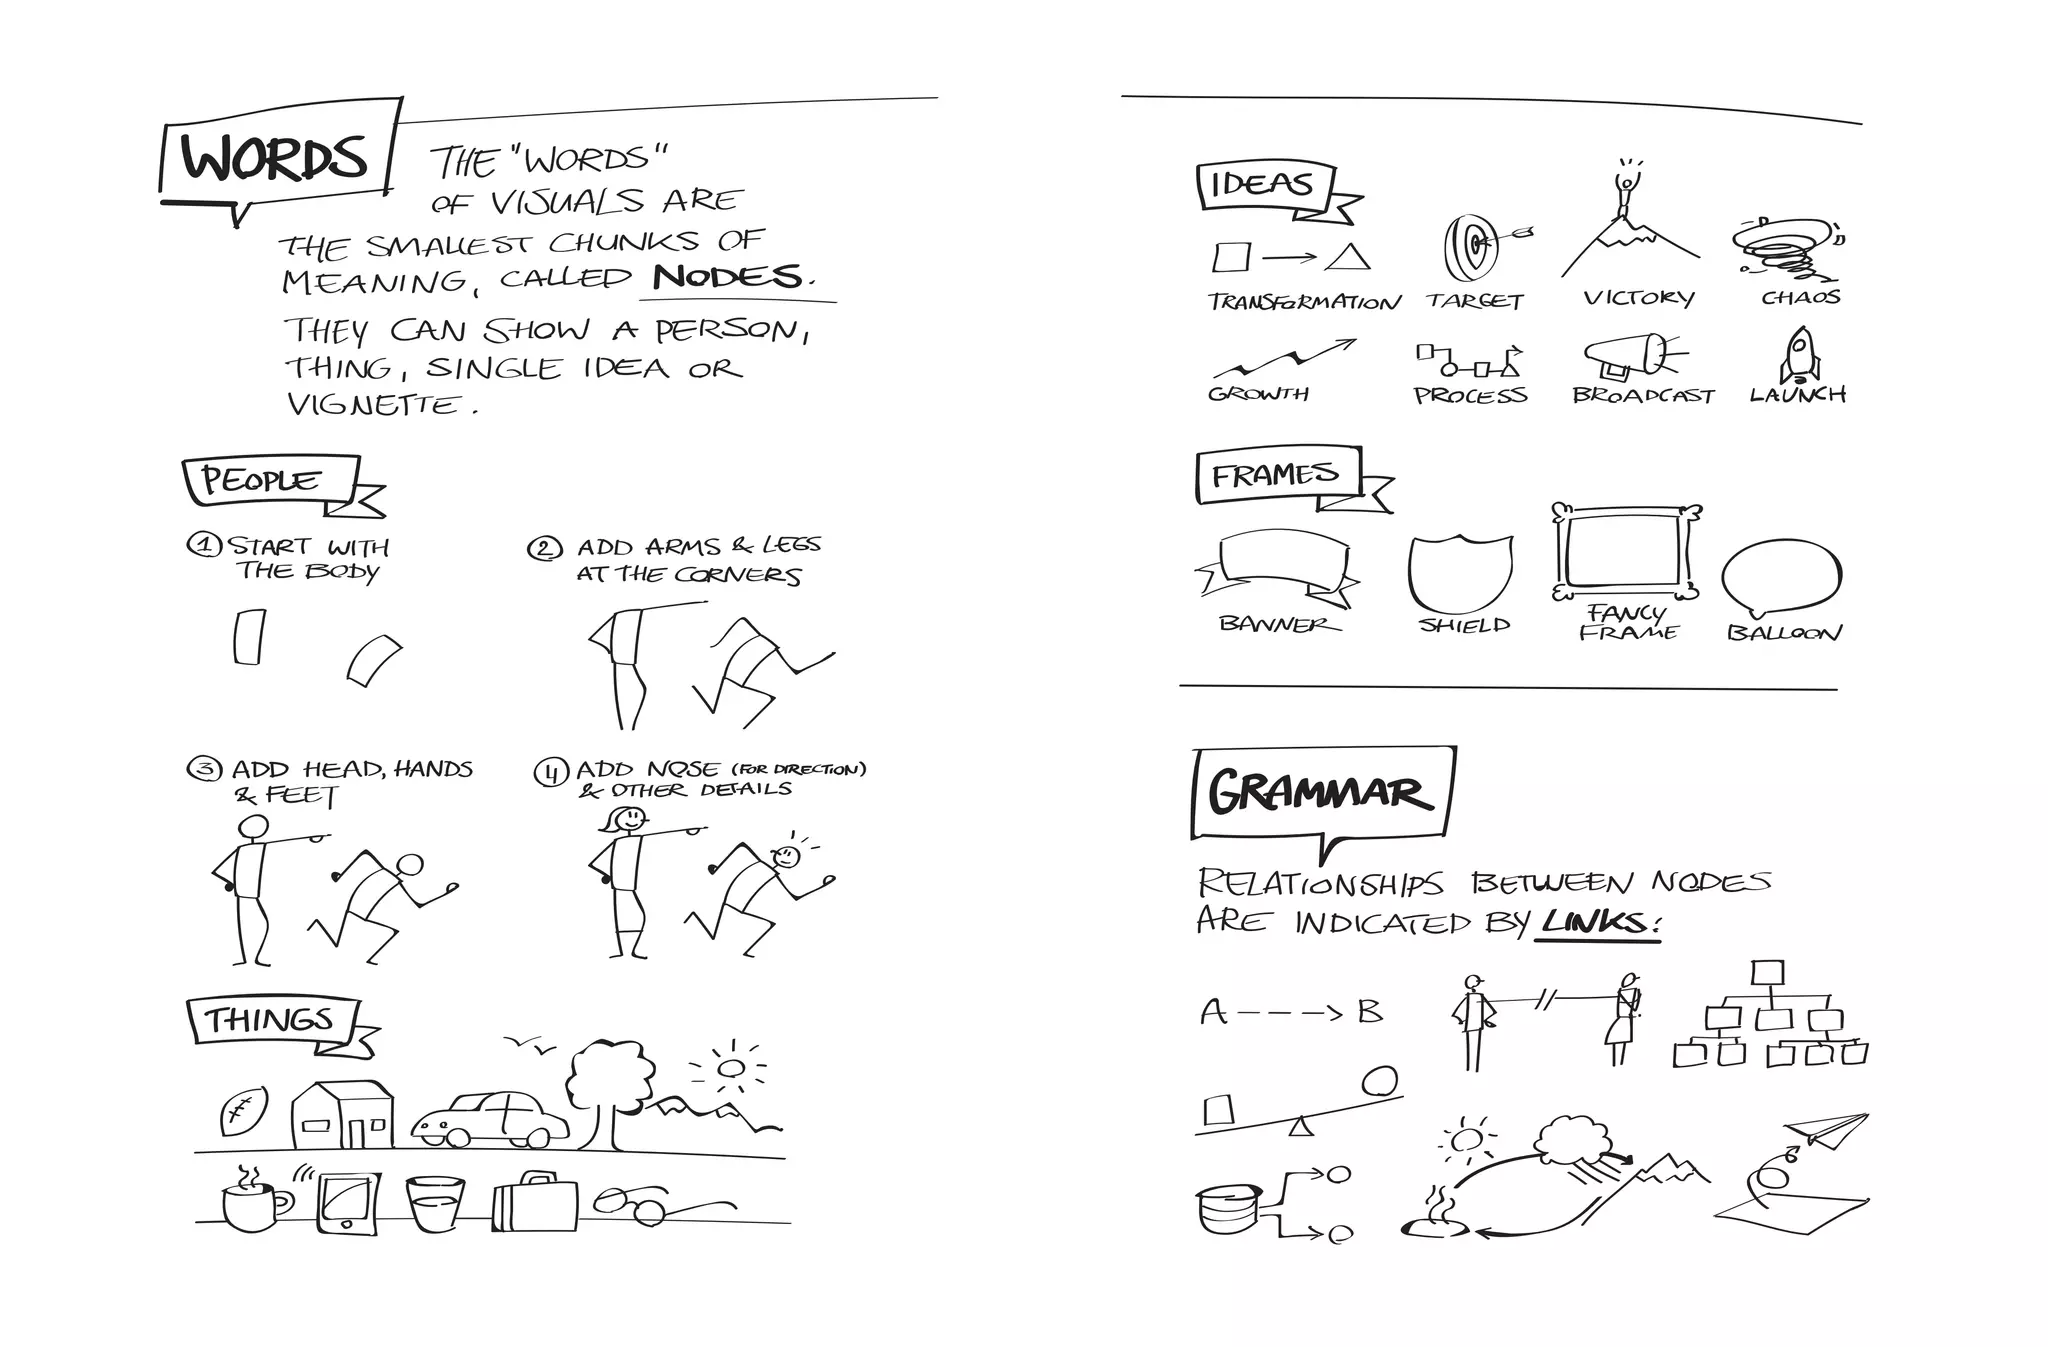 WORDS
THE "WORDS"
OF VISUALS ARE
THE SMALLEST CHUNKS OF
MEANING, CALLED NODES.
THEY CAN SHOW A PERSON,
THING, SINGLE IDEA OR
VIGNETTE.
PEOPLE
1 START WITH
THE BODY
2 ADD ARMS & LEGS
AT THE CORNERS
3 ADD HEAD, HANDS
& FEET
4 ADD NOSE (FOR DIRECTION)
& OTHER DETAILS
THINGS
IDEAS
TRANSFORMATION
TARGET
VICTORY
CHAOS
GROWTH
PROCESS
BROADCAST
LAUNCH
FRAMES
BANNER
SHIELD
FANCY
FRAME
BALLOON
GRAMMAR
RELATIONSHIPS BETWEEN NODES
ARE INDICATED BY LINKS:
A B